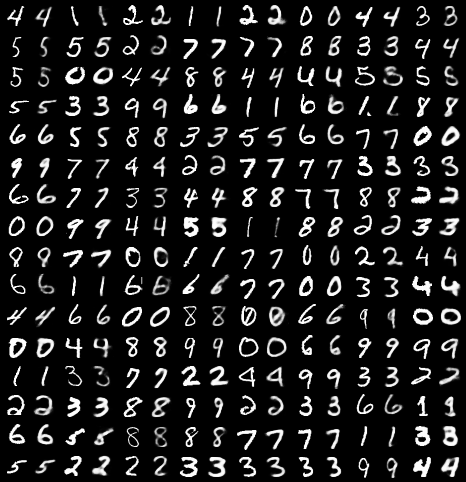 4 4 1 1 2 2 1 1 2 2 0 0 4 4 3 3
5 5 5 5 2 2 7 7 7 7 8 8 3 3 4 4
5 5 0 0 4 4 8 8 4 4 4 4 5 5 5 5
5 5 3 3 9 9 6 6 1 1 6 6 1 1 8 8
6 6 5 5 8 8 3 3 5 5 6 6 7 7 0 0
9 9 7 7 4 4 2 2 7 7 7 7 3 3 3 3
6 6 7 7 3 3 4 4 8 8 7 7 8 8 2 2
0 0 9 9 4 4 5 5 1 1 8 8 2 2 3 3
8 8 7 7 0 0 1 1 7 7 0 0 2 2 4 4
6 6 1 1 6 6 6 6 7 7 0 0 3 3 4 4
4 4 6 6 0 0 8 8 0 0 6 6 9 9 0 0
0 0 4 4 8 8 9 9 0 0 6 6 9 9 9 9
1 1 3 3 7 7 2 2 4 4 9 9 3 3 2 2
2 2 3 3 8 8 9 9 2 2 3 3 6 6 1 1
6 6 5 5 8 8 8 8 7 7 7 7 1 1 3 3
5 5 2 2 2 2 3 3 3 3 3 3 9 9 4 4